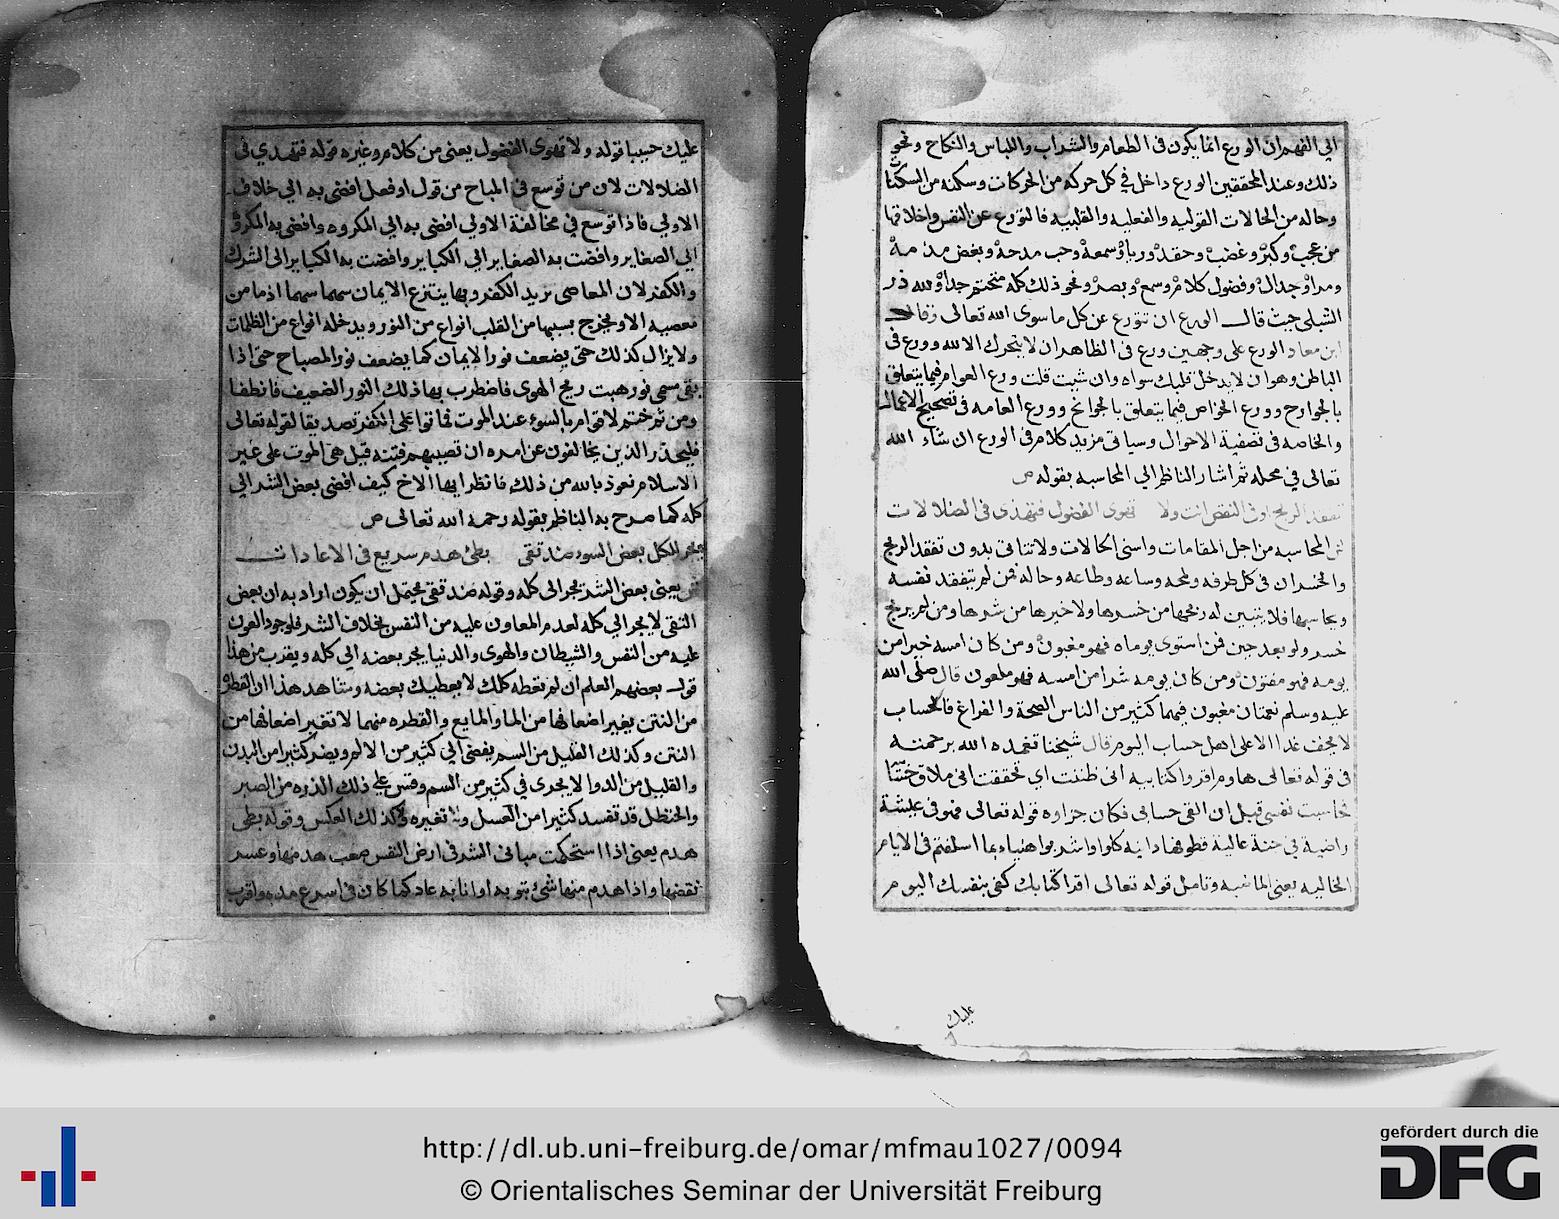 الي الفهم ان الورع انما يكون في الطعام والشراب واللباس والنكاح ونحو
ذلك وعند المحققين الورع داخل في كل حركه من الحركات وسكنه من السكنات
وحاله من الحالات القوليه والفعليه والقلبيه فالتورع عن النفس واخلاقها
من عجب وكبر وغضب وحقد ورياء وسمعة وحب مدحة وبغض مذمة
ومراء وجدال وفضول كلام وسمع وبصر ونحو ذلك كله متحتم جدا ولله در
الشبلي حيث قال الورع ان تتورع عن كل ما سوى الله تعالى وقال
ابن معاد الورع على وجهين ورع في الظاهر ان لا يتحرك الا لله وورع في
الباطن وهو ان لا يدخل قلبك سواه وان شيت قلت ورع العوام فيما يتعلق
بالجوارح وورع الخواص فيما يتعلق بالجوانح وورع العامه في تصحيح الاعمال
والخاصه في تصفية الاحوال وسياتي مزيد كلام في الورع ان شاء الله
تعالى في محله ثم اشار الناظم الي المحاسبه بقوله ص
تفقد الربح اوفى النقص انت ولا تهوى الفضول فتهدى في الضلالات
المحاسبه من اجل المقامات واسنى الحالات ولا تتاتى بدون تفقد الربح
والخسران في كل طرفه ولمحه وساعه وطاعه وحاله فمن لم يتفقد نفسه
ويحاسبها فلا يتبين له ربحها من خسرها ولا خيرها من شرها ومن لم يربح
خسر ولو بعد حين فمن استوى يوماه فهو مغبون ومن كان امسه خيرا من
يومه فهو مفتون ومن كان يومه شرا من امسه فهو ملعون قال صلى الله
عليه وسلم نعمتان مغبون فيهما كثير من الناس الصحة والفراغ فالحساب
لا يخف غدا الا على اهل حساب اليوم قال شيخنا تغمده الله برحمته
في قوله تعالى هاوم اقروا كتابيه اني ظننت اي تحققت اني ملاق حسابيه
حاسبت نفسي قبل ان القى حسابي فكان جزاوه قوله تعالى فهو في عيشة
راضية في جنة عالية قطوفها دانيه كلوا واشربوا هنيا بما اسلفتم في الايام
الخاليه يعني الماضيه وتامل قوله تعالى اقرا كتابك كفى بنفسك اليوم
عليك
عليك حسيبا قوله ولا تهوى الفضول يعني من كلام وغيره قوله فتهدي في
الضلالات لان من توسع في المباح من قول او فعل افضى به الي خلاف
الاولي فاذا توسع في مخالفة الاولي افضى به الي المكروه وافضى به المكروه
الي الصغاير وافضت به الصغاير الي الكباير وافضت به الكباير الى الشرك
والكفر لان المعاصي بريد الكفر وبها ينتزع الايمان سهما سهما اذ ما من
معصيه الا ويخرج بسببها من القلب انواع من النور ويدخله انواع من الظلمات
ولا يزال كذلك حتى يضعف نور الايمان كما يضعف نور المصباح حتى اذا
بقى مسمى نور هبت ريح الهوى فاضطرب بها ذلك النور الضعيف فانطفا
ومن ثم ختم لاقوام بالسوء عند الموت فماتوا على الكفر تصديقا لقوله تعالى
فليحذر الذين يخالفون عن امره ان تصيبهم فتنه قيل هي الموت على غير
الاسلام نعوذ بالله من ذلك فانظر ايها الاخ كيف افضى بعض الشر الي
كله كما صرح به الناظم بقوله رحمه الله تعالى ص
يجر للكل بعض السوء ضد تقى بطئ هدم سريع في الاعادات
ش يعني بعض الشر يجر الى كله وقوله ضد تقى يحتمل ان يكون اراد به ان بعض
التقى لا يجر الي كله لعدم المعاون عليه من النفس بخلاف الشر فلوجود العون
عليه من النفس والشيطان والهوى والدنيا يجر بعضه الي كله ويقرب من هذا
قول بعضهم العلم ان لم تعطه كلك لا يعطيك بعضه ومشاهد هذا ان القطرة
من النتن يغير اضعافها من الما والمايع والقطره منهما لا تغير اضعافها من
النتن وكذلك القليل من السم يفضى الي كثير من الالم ويضر كثيرا من البدن
والقليل من الدوا لا يجدى في كثير من السم وقس على ذلك الذره من الصبر
والحنظل قد تفسد كثيرا من العسل وتغيره ولا كذلك العكس وقوله بطى
هدم يعني اذا استحكمت مباني الشر في ارض النفس صعب هدمها وعسر
نقضها واذا هدم منها شئ بتوبه او انابه عاد كما كان في اسرع مده واقرب
http://dl.ub.uni-freiburg.de/omar/mfmau1027/0094
© Orientalisches Seminar der Universität Freiburg
gefördert durch die
DFG